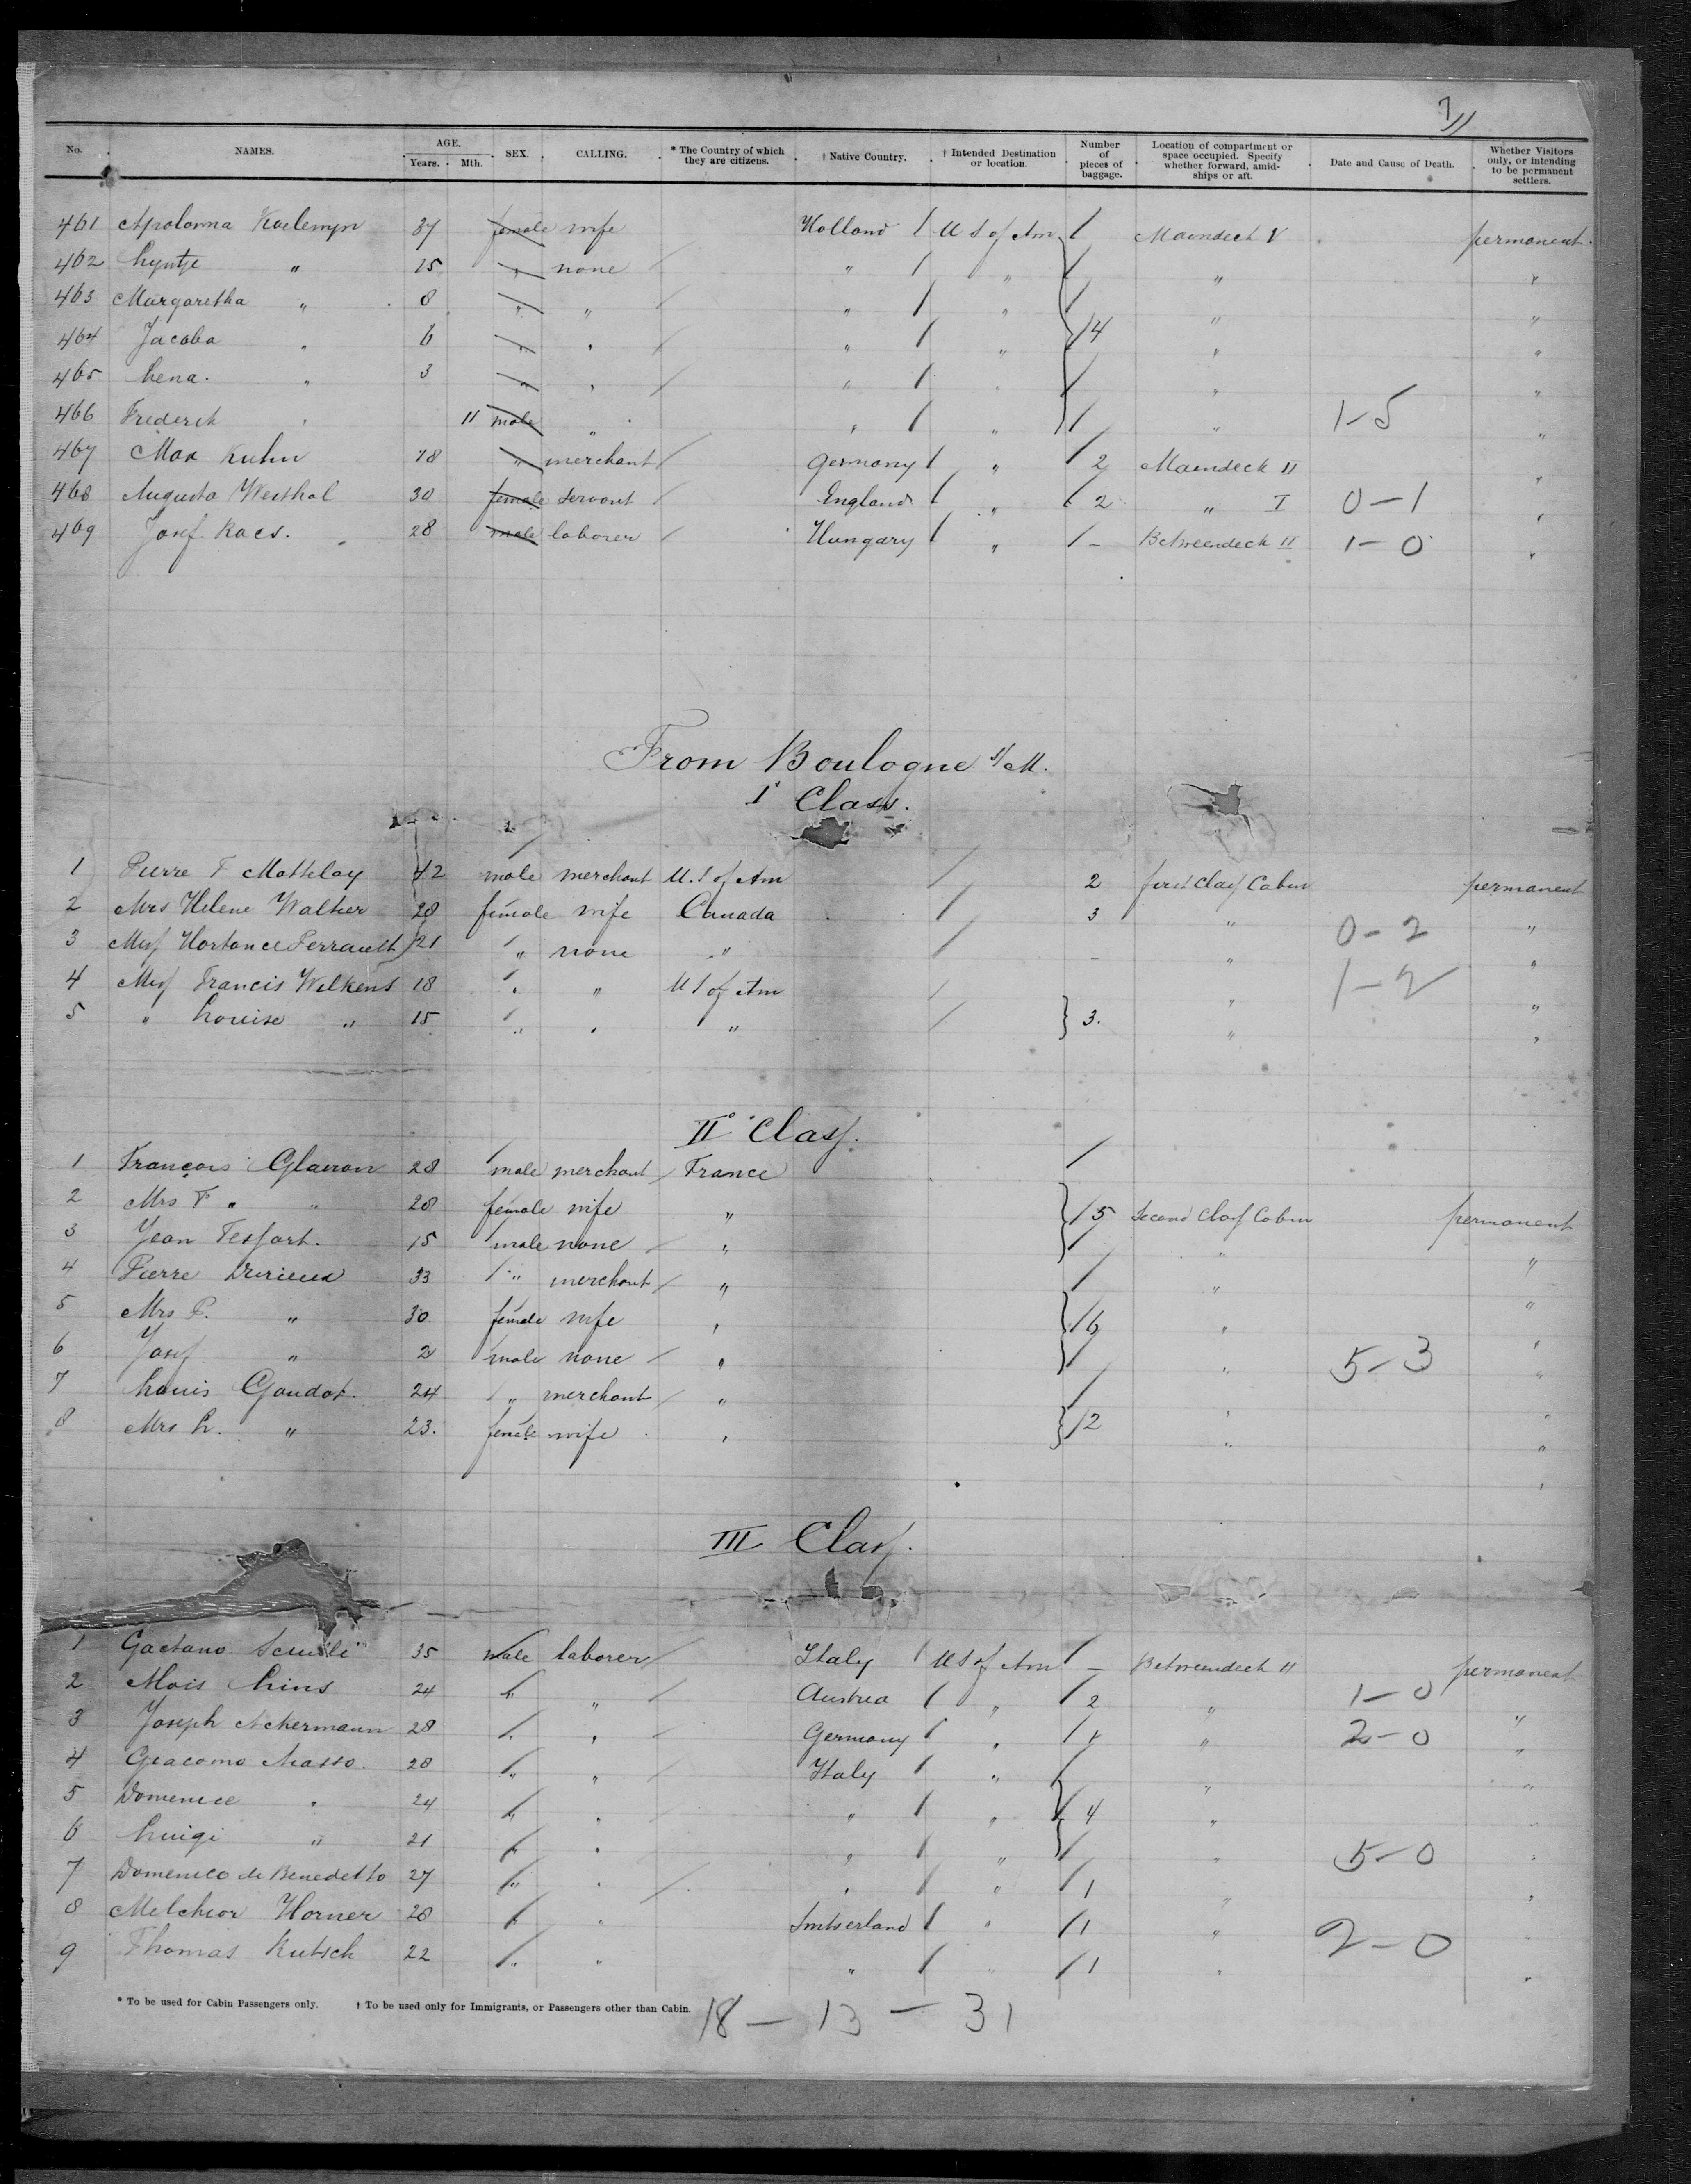 7/11
No. NAMES. AGE. Years. Mth. SEX. CALLING. * The Country of which they are citizens. † Native Country. † Intended Destination or location. Number of pieces of baggage. Location of compartment or space occupied. Specify whether forward, amidships or aft. Date and Cause of Death. Whether Visitors only, or intending to be permanent settlers.
461 Apolonna Koelemyn 37 female wife Holland U S of Am Maindeck V permanent.
462 Lyntje " 15 " none " " " "
463 Margaretha " 8 " " " " " "
464 Jacoba " 6 " " " " 14 " "
465 Lena. " 3 " " " " " "
466 Frederik " 11 male " " " " 1-5 "
467 Max Kuhn 18 " merchant Germany " 2 Maindeck II "
468 Augusta Westhal 30 female servant England " 2 " I 0-1 "
469 Josef Kacs. 28 male laborer Hungary " - Betweendeck II 1-0 "
From Boulogne s/M.
I° Class.
1 Pierre F Mottelay 42 male merchant U.S of Am 2 first Class Cabin permanent
2 Mrs Helene Walker 28 female wife Canada 3 " 0-2 "
3 Miss Hortance Perrault 21 " none " - " "
4 Miss Francis Wilkens 18 " " U S of Am " 1-2 "
5 " Louise " 15 " " " 3. " "
II° Class.
1 François Glairon 28 male merchant France
2 Mrs F " " 28 female wife " 5 Second Class Cabin permanent
3 Jean Tesfort. 15 male none " " "
4 Pierre Derieux 33 " merchant " " "
5 Mrs P. " 30 female wife " 6 " "
6 Josef " 2 male none " " 5-3 "
7 Louis Goudot. 24 " merchant " " "
8 Mrs L. " 23. female wife " 2 " "
III Class.
1 Gaetano 35 male laborer Italy U S of Am - Betweendeck II permanent
2 Alois Lins 24 " " Austria " 2 " 1-0 "
3 Joseph Ackermann 28 " " Germany " 1 " 2-0 "
4 Giacomo Masso. 28 " " Italy " " "
5 Domenice " 24 " " " " 4 "
6 Luigi " 21 " " " " " 5-0 "
7 Domenico de Benedetto 27 " " " " 1 " "
8 Melchior Horner 28 " " Switserland " 1 " 2-0 "
9 Thomas Kutsch 22 " " " " 1 " "
* To be used for Cabin Passengers only. † To be used only for Immigrants, or Passengers other than Cabin.
18 - 13 - 31